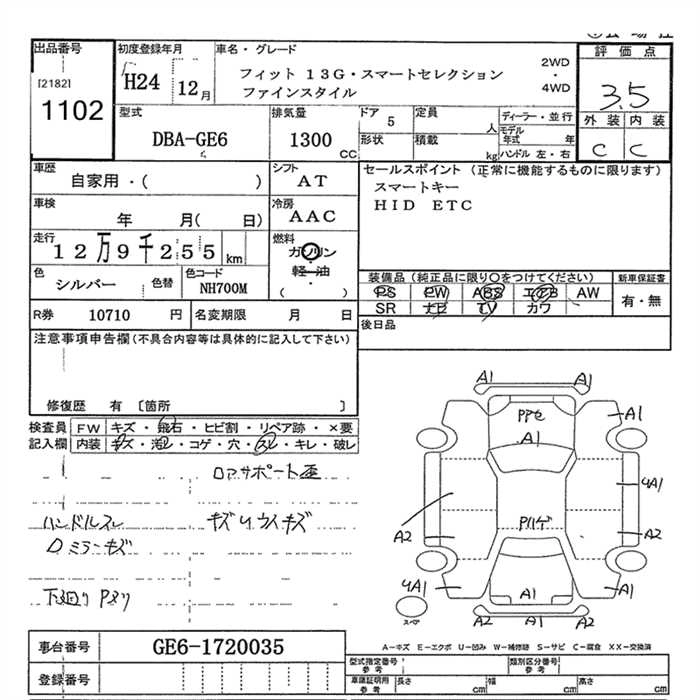 出品番号
[2182]
1102
初度登録年月
H24 12月
車名・グレード
フィット 13G・スマートセレクション
ファインスタイル
2WD
・
4WD
評価点
3.5
外装 内装
C C
型式
DBA-GE6
排気量
1300
CC
ドア
5
形状
定員
人
積載
kg
ディーラー・並行
モデル年式 年
ハンドル 左・右
車歴
自家用・( )
シフト
AT
車検
年 月( 日)
冷房
AAC
走行
12万9千255 km
燃料
ガソリン
・
軽油
( )
色
シルバー
色替
色コード
NH700M
セールスポイント (正常に機能するものに限ります)
スマートキー
HID ETC
装備品 (純正品に限り○をつけてください)
PS PW ABS エアB AW
SR ナビ TV カワ
新車保証書
有・無
R券 10710 円
名変期限 月 日
後日品
注意事項申告欄(不具合内容等は具体的に記入して下さい)
修復歴 有 〔箇所 〕
検査員
記入欄
FW キズ・飛石・ヒビ割・リペア跡・×要
内装 キズ・汚レ・コゲ・穴・スレ・キレ・破レ
ロアサポート歪
ハンドルスレ
キズ
Dミラーキズ
下廻り
A1 A1
Pアセ
A1
A1
4A1
A2
A2
4A1
A1
A1
A2 A2
スペア
A-キズ E-エクボ U-凹み W-補修跡 S-サビ C-腐食 XX-交換済
車台番号
GE6-1720035
登録番号
型式指定番号
参考
類別区分番号
参考
車庫証明用
参考
長さ cm
幅 cm
高さ cm